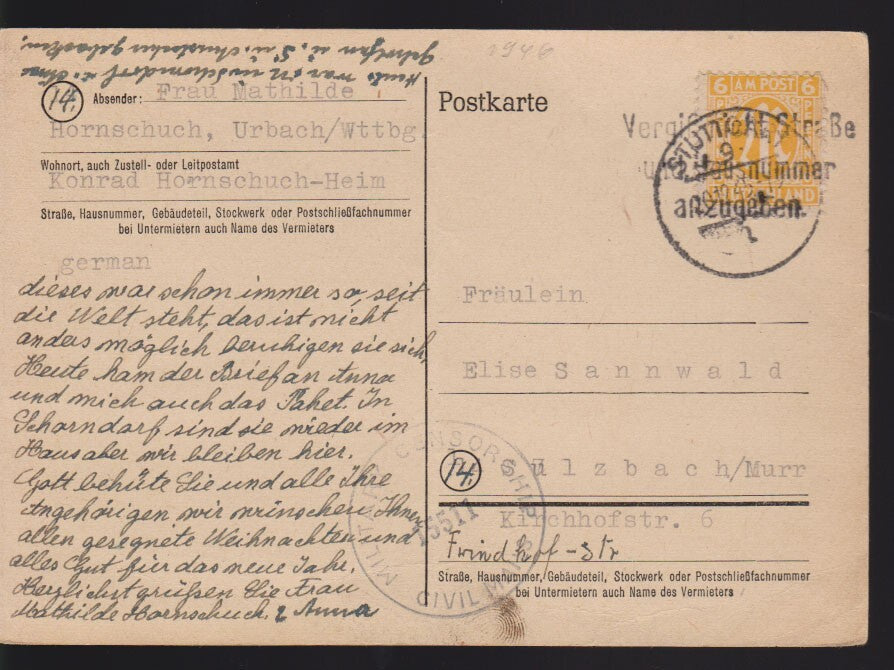 1946
Heute war ich in Schorndorf u.
(14) Absender: Frau Mathilde
Hornschuch, Urbach/Wttbg.
Wohnort, auch Zustell- oder Leitpostamt
Konrad Hornschuch-Heim
Straße, Hausnummer, Gebäudeteil, Stockwerk oder Postschließfachnummer
bei Untermietern auch Name des Vermieters
german
dieses war schon immer so, seit
die Welt steht, das ist nicht
anders möglich beruhigen sie sich,
Heute kam der Brief an Anna
und mich auch das Paket. In
Schorndorf sind sie wieder im
Haus aber wir bleiben hier.
Gott behüte Sie und alle Ihre
Angehörigen wir wünschen Ihnen
allen gesegnete Weihnachten und
alles Gut für das neue Jahr.
Herzlichst grüßen Sie Frau
Mathilde Hornschuch. & Anna
Postkarte
6 AM POST 6
Straße
und Hausnummer
anzugeben.
STUTTGART
9
Fräulein
Elise Sannwald
(14) Sulzbach/Murr
Kirchhofstr. 6
Frindhof-Str
Straße, Hausnummer, Gebäudeteil, Stockwerk oder Postschließfachnummer
bei Untermietern auch Name des Vermieters
MILITARY CENSORSHIP
15511
CIVIL MAILS